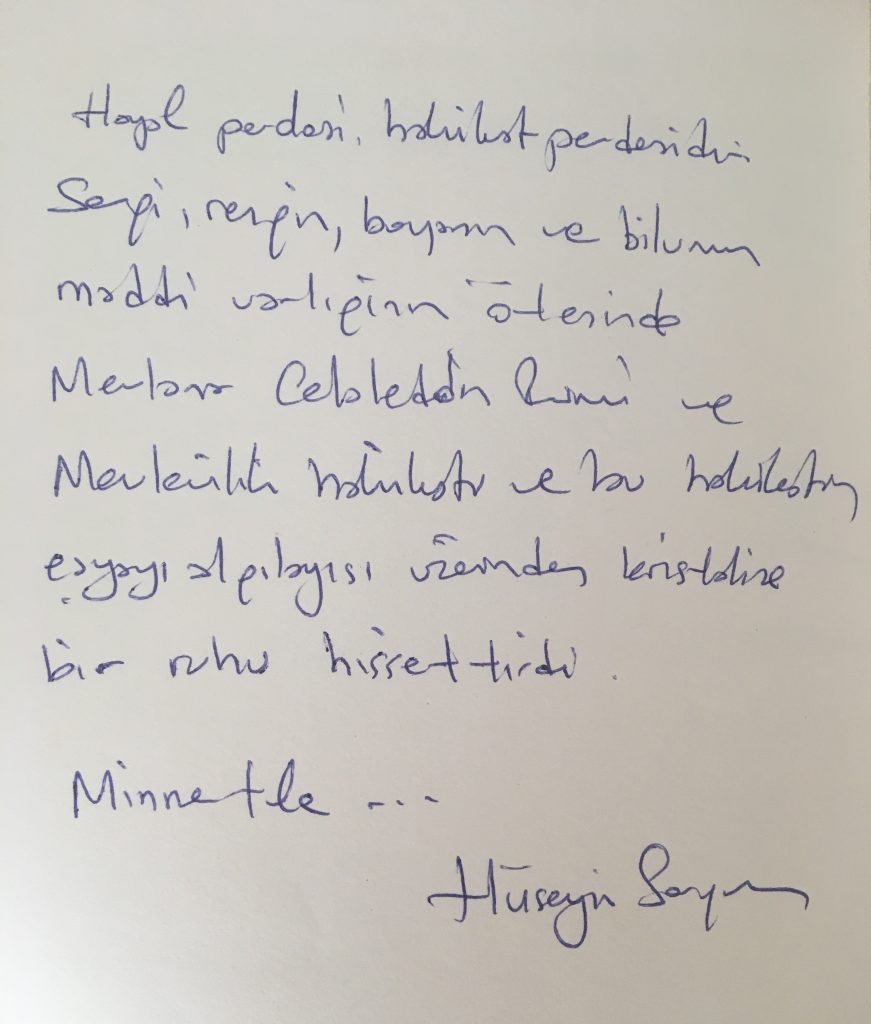 Hayal perdesi, hakikat perdesidir
Sergi, rengin, boyanın ve bilumum
maddi varlığın ötesinde
Mevlana Celaleddin Rumi ve
Mevlevilik hakikati ve bu hakikatin
eşyayı algılayışı üzerinden kristalize
bir ruhu hissettirdi.
Minnetle ...
Hüseyin